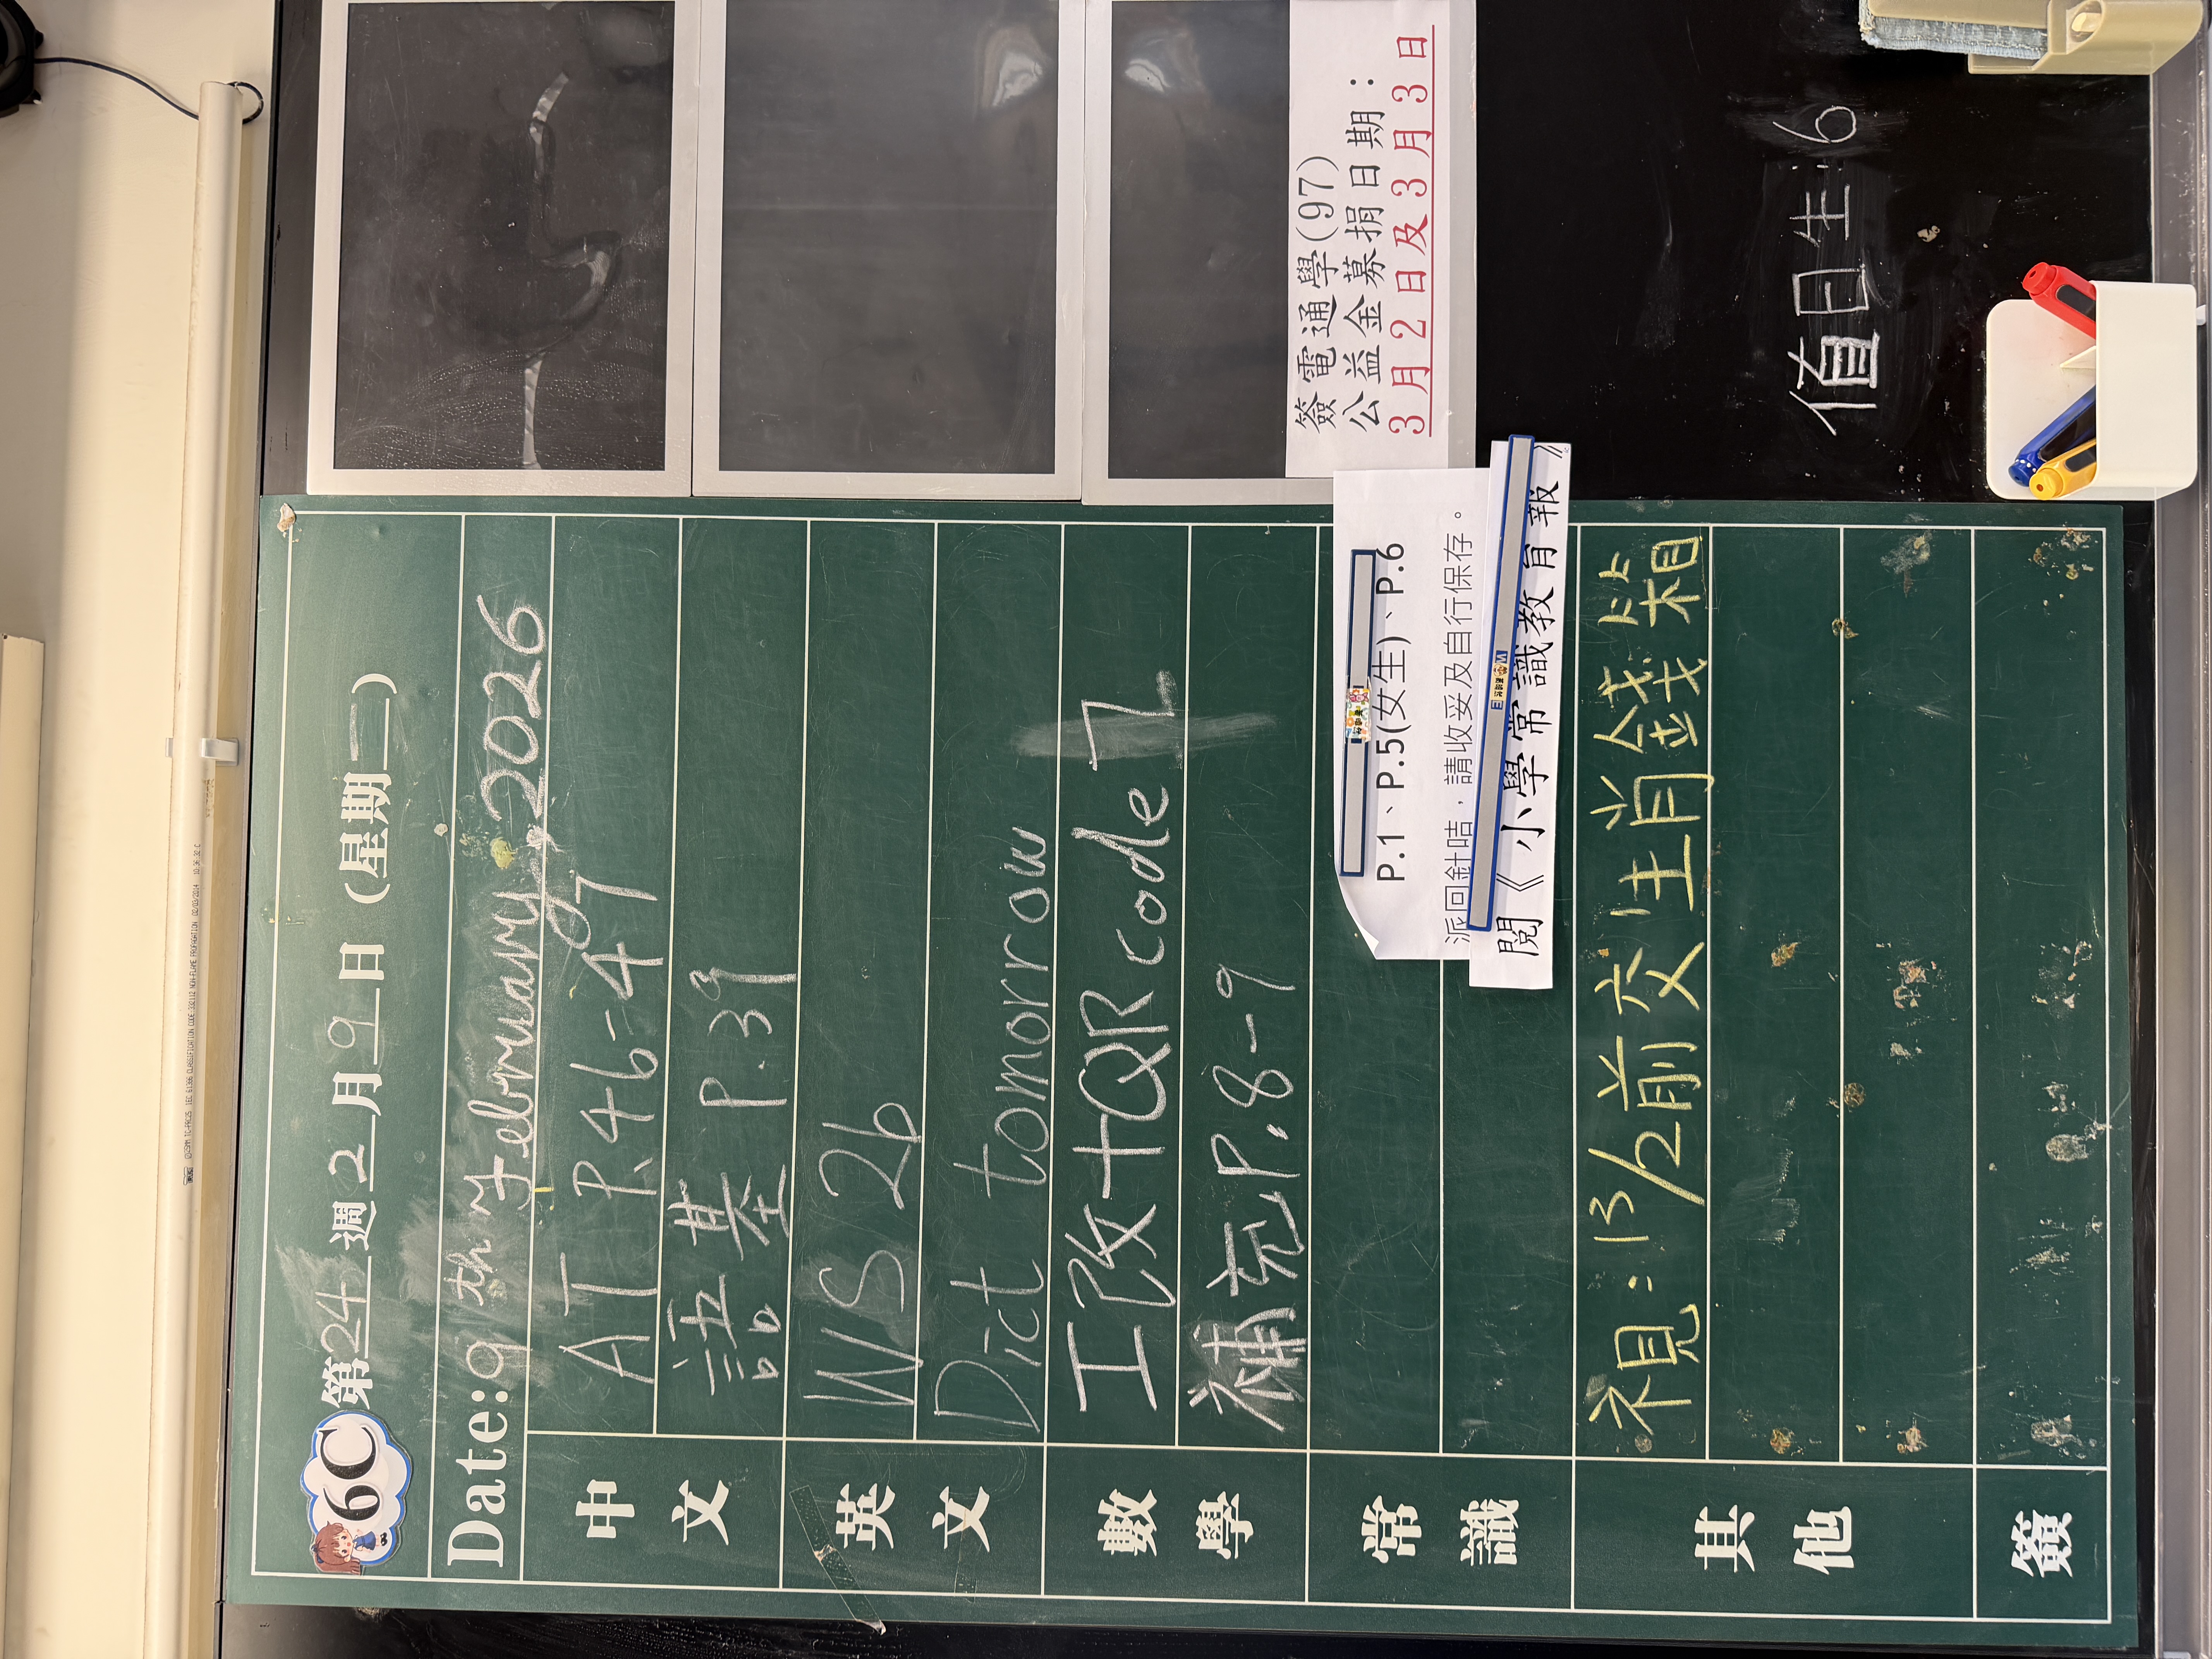 6C 第24週 2月9日(星期二)
Date:9th February, 2026
中文
AT P.46-47
語基 P.39
英文
WS 26
Dict tomorrow
數學
工改+QR code 7
補充P.8-9
常識
P.1、P.5(女生)、P.6
派回針咭，請收妥及自行保存。
閱《小學常識教育報》
其他
視:13/2前交生肖錢箱
簽
簽電通學(97)
公益金募捐日期：
3月2日及3月3日
值日生:6